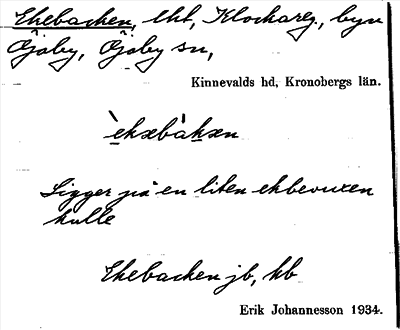 Ekebacken, lht, Klockareg., byn
Öjaby, Öjaby sn,
Kinnevalds hd, Kronobergs län.
èkəbàkən
Ligger på en liten ekbevuxen
kulle
Ekebacken jb, kb
Erik Johannesson 1934.